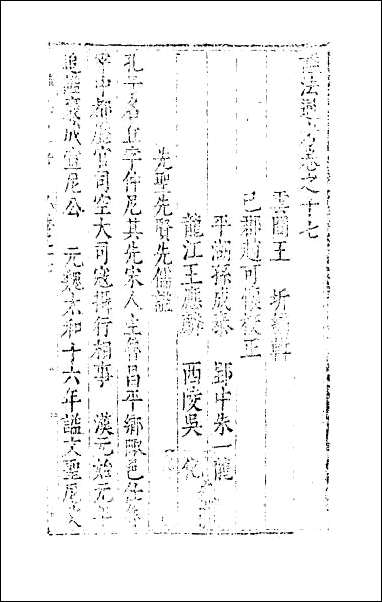 諡法通考卷之十七
雲間王 圻
巴郡趙可懷校正
平湖孫成泰 郢中朱一龍
龍江王應麟 西陵吳 化
先聖先賢先儒諡
孔子名丘字仲尼其先宋人生魯昌平鄉陬邑仕魯
宰中都歷官司空大司寇攝行相事 漢元始元年
追諡襃成宣尼公 元魏太和十六年諡文聖尼父